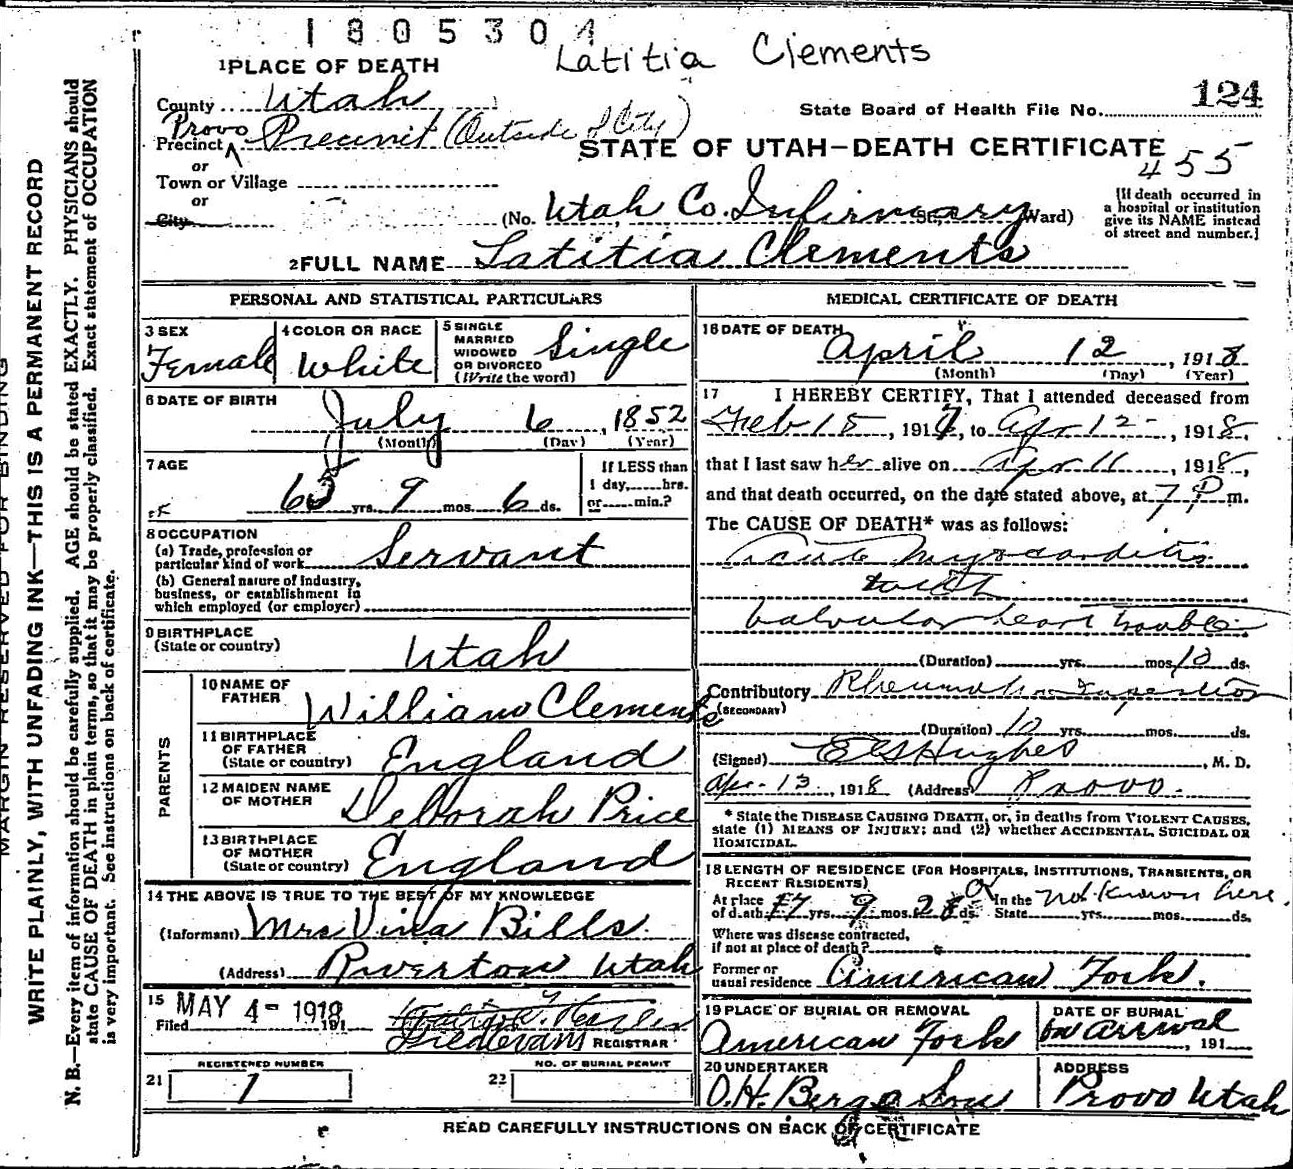 1805304
Latitia Clements
1 PLACE OF DEATH
County Utah
State Board of Health File No. 124
Provo
Precinct Precinct (Outside of City)
STATE OF UTAH—DEATH CERTIFICATE
455
or
Town or Village
or
City
(No. Utah Co. Infirmary St., Ward)
[If death occurred in
a hospital or institution
give its NAME instead
of street and number.]
2 FULL NAME Latitia Clements
PERSONAL AND STATISTICAL PARTICULARS
3 SEX
Female
4 COLOR OR RACE
White
5 SINGLE
MARRIED
WIDOWED
OR DIVORCED
(Write the word)
Single
6 DATE OF BIRTH
July 6, 1852
(Month) (Day) (Year)
7 AGE
65 yrs. 9 mos. 6 ds.
If LESS than
1 day, hrs.
or min.?
8 OCCUPATION
(a) Trade, profession or
particular kind of work Servant
(b) General nature of industry,
business, or establishment in
which employed (or employer)
9 BIRTHPLACE
(State or country)
Utah
PARENTS
10 NAME OF
FATHER William Clements
11 BIRTHPLACE
OF FATHER
(State or country) England
12 MAIDEN NAME
OF MOTHER Deborah Price
13 BIRTHPLACE
OF MOTHER
(State or country) England
14 THE ABOVE IS TRUE TO THE BEST OF MY KNOWLEDGE
(Informant) Mrs Vina Bills
(Address) Riverton Utah
15
Filed MAY 4 - 1918 191
REGISTRAR
REGISTERED NUMBER
21 1
NO. OF BURIAL PERMIT
22
MEDICAL CERTIFICATE OF DEATH
16 DATE OF DEATH
April 12, 1918
(Month) (Day) (Year)
17 I HEREBY CERTIFY, That I attended deceased from
Feb 15, 1917, to Apr 12, 1918,
that I last saw her alive on Apr 11, 1918,
and that death occurred, on the date stated above, at 7 P m.
The CAUSE OF DEATH* was as follows:
Acute Myocarditis
with
Valvular heart trouble
(Duration) yrs. mos. 10 ds.
Contributory
(SECONDARY)
(Duration) 10 yrs. mos. ds.
(Signed) Hughes, M. D.
Apr. 13, 1918 (Address) Provo.
* State the DISEASE CAUSING DEATH, or, in deaths from VIOLENT CAUSES,
state (1) MEANS OF INJURY; and (2) whether ACCIDENTAL, SUICIDAL OR
HOMICIDAL.
18 LENGTH OF RESIDENCE (FOR HOSPITALS, INSTITUTIONS, TRANSIENTS, OR
RECENT RESIDENTS)
At place
of death yrs. 9 mos. 28 ds. In the
State Not known here. yrs. mos. ds.
Where was disease contracted,
if not at place of death?
Former or
usual residence American Fork.
19 PLACE OF BURIAL OR REMOVAL
American Fork
DATE OF BURIAL
on arrival, 191
20 UNDERTAKER
O.H. Berg & Son
ADDRESS
Provo Utah
READ CAREFULLY INSTRUCTIONS ON BACK OF CERTIFICATE
MARGIN RESERVED FOR BINDING
WRITE PLAINLY, WITH UNFADING INK—THIS IS A PERMANENT RECORD
N. B.—Every item of information should be carefully supplied. AGE should be stated EXACTLY. PHYSICIANS should
state CAUSE OF DEATH in plain terms, so that it may be properly classified. Exact statement of OCCUPATION
is very important. See instructions on back of certificate.